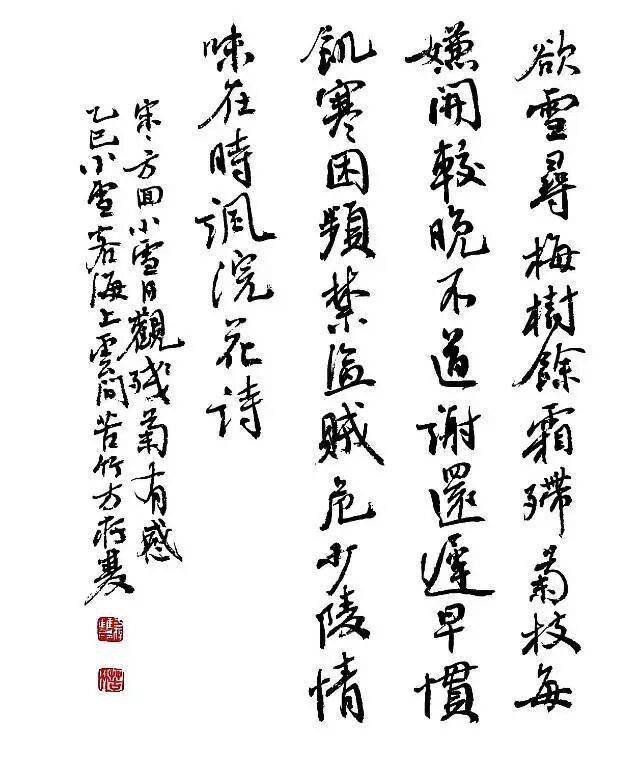 欲雪尋梅樹餘霜殢菊枝每
嫌開較晚不道謝還遲早慣
飢寒困頻禁盜賊危少陵情
味在時諷浣花詩
宋、方回小雪日觀殘菊有感
乙巳小雪客海上雲間苦竹方存